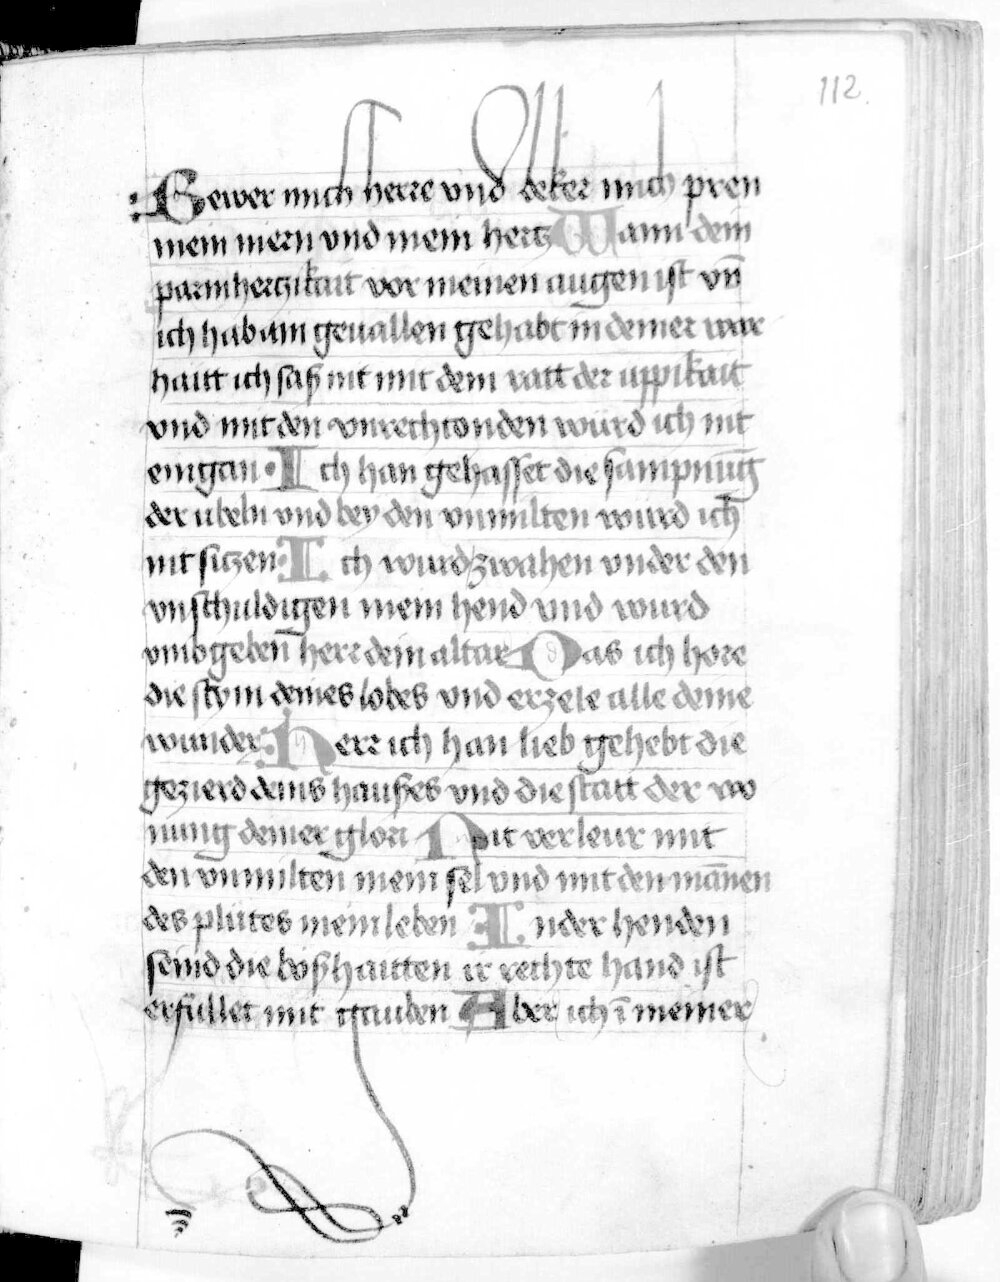 112.
Bewer mich herre vnd beker mich pren
mein niern vnd mein hertz Wann dein
parmhertzikait vor meinen augen ist vn̄
ich hab ain geuallen gehabt in deiner war
haitt ich saß nit mit dem ratt der üppikait
vnd mit den vnrechtonden würd ich nit
eingan · Ich han gehasset die sampnūg
der ubeln vnd bey den vnmilten wurd ich
nit siczen · Ich wurd zwahen vnder den
vnschuldigen mein hend vnd wurd
vmbgeben̄ herr dein altar Das ich hore
die stym deines lobes vnd erzele alle deine
wunder · Herr ich han lieb gehebt die
gezierd deins haußes vnd die statt der wo
nung deiner glori Nit verleur mit
den vnmilten mein sel vnd mit den mānen
des plütes mein leben In der henden
seind die boßhaitten ir rechte hand ist
erfüllet mit gauben Aber ich ī meiner